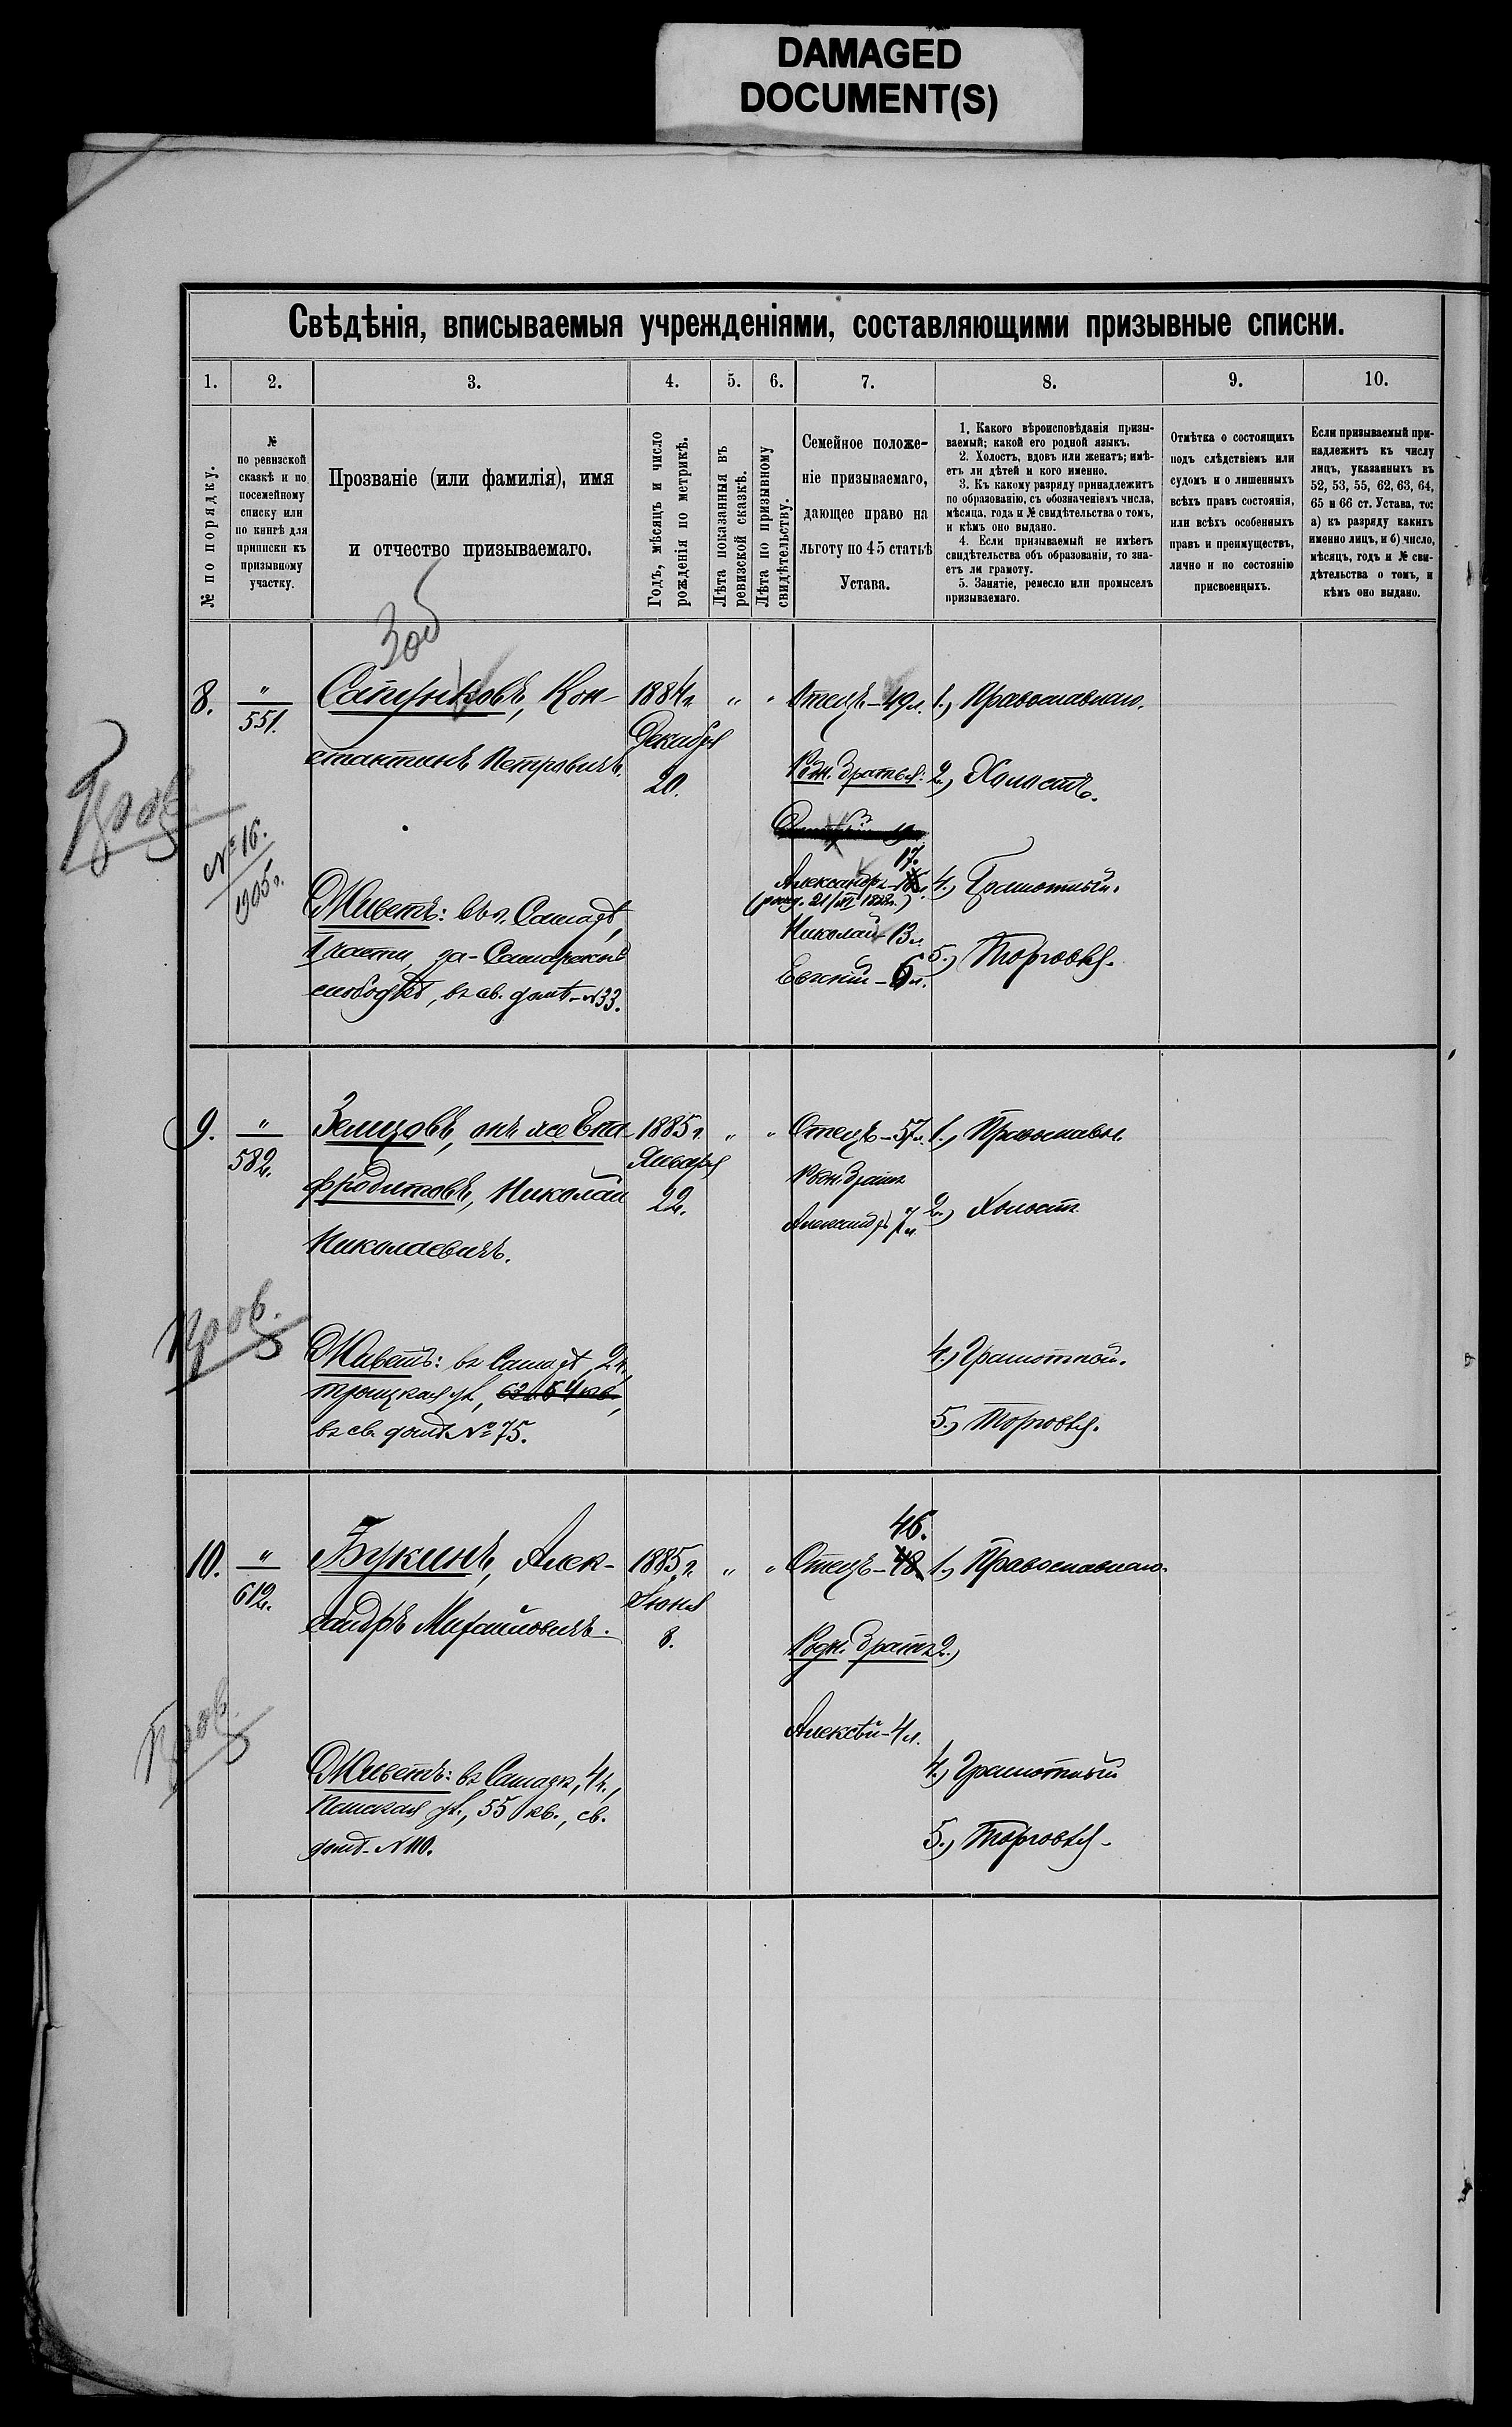 DAMAGED
DOCUMENT(S)
Свѣдѣнія, вписываемыя учрежденіями, составляющими призывные списки.
1. 2. 3. 4. 5. 6. 7. 8. 9. 10.
№ по порядку.
№
по ревизской
сказкѣ и по
посемейному
списку или
по книгѣ для
приписки къ
призывному
участку.
Прозваніе (или фамилія), имя
и отчество призываемаго.
Годъ, мѣсяцъ и число
рожденія по метрикѣ.
Лѣта показанныя въ
ревизской сказкѣ.
Лѣта по призывному
свидѣтельству.
Семейное положе-
ніе призываемаго,
дающее право на
льготу по 45 статьѣ
Устава.
1. Какого вѣроисповѣданія призы-
ваемый; какой его родной языкъ.
2. Холостъ, вдовъ или женатъ; имѣ-
етъ ли дѣтей и кого именно.
3. Къ какому разряду принадлежитъ
по образованію, съ обозначеніемъ числа,
мѣсяца, года и № свидѣтельства о томъ,
и кѣмъ оно выдано.
4. Если призываемый не имѣетъ
свидѣтельства объ образованіи, то зна-
етъ ли грамоту.
5. Занятіе, ремесло или промыселъ
призываемаго.
Отмѣтка о состоящихъ
подъ слѣдствіемъ или
судомъ и о лишенныхъ
всѣхъ правъ состоянія,
или всѣхъ особенныхъ
правъ и преимуществъ,
лично и по состоянію
присвоенныхъ.
Если призываемый при-
надлежитъ къ числу
лицъ, указанныхъ въ
52, 53, 55, 62, 63, 64,
65 и 66 ст. Устава, то:
а) къ разряду какихъ
именно лицъ, и б) число,
мѣсяцъ, годъ и № сви-
дѣтельства о томъ, и
кѣмъ оно выдано.
8.
"
551.
Пров.
№ 16.
1905 г.
Кон-
стантинъ Петровичъ.
Живетъ: въ г. Самарѣ,
1 части, за-Самарской
слободѣ, въ св. домѣ-№33.
1884 г.
Декабря
20.
" "
Отецъ-49 л.
Родн. братья:
17.
Александръ
Николай-13 л.
Евгеній-6 л.
1., Православнаго.
2., Холостъ.
4., Грамотный.
5., Торговля.
9.
"
582.
Пров.
Земцовъ, онъ же Епа-
фродитовъ, Николай
Николаевичъ.
Живетъ: въ Самарѣ, 2 ч.
Троицкая ул.,
въ св. домѣ № 75.
1885 г.
Января
22.
" "
Отецъ-57 л.
Родн. братъ
Александръ 7 л.
1., Православн.
2., Холостъ.
4., Грамотной.
5., Торговля.
10.
"
612.
Пров.
Букинъ, Алек-
сандръ Михайловичъ.
Живетъ: въ Самарѣ, 4 ч.,
ул., 55 кв., св.
домѣ-№110.
1885 г.
Іюня
8.
" "
46.
Отецъ-48
Родн. братъ
Алексѣй-4 л.
1., Православнаго.
2.,
4., Грамотный
5., Торговля.